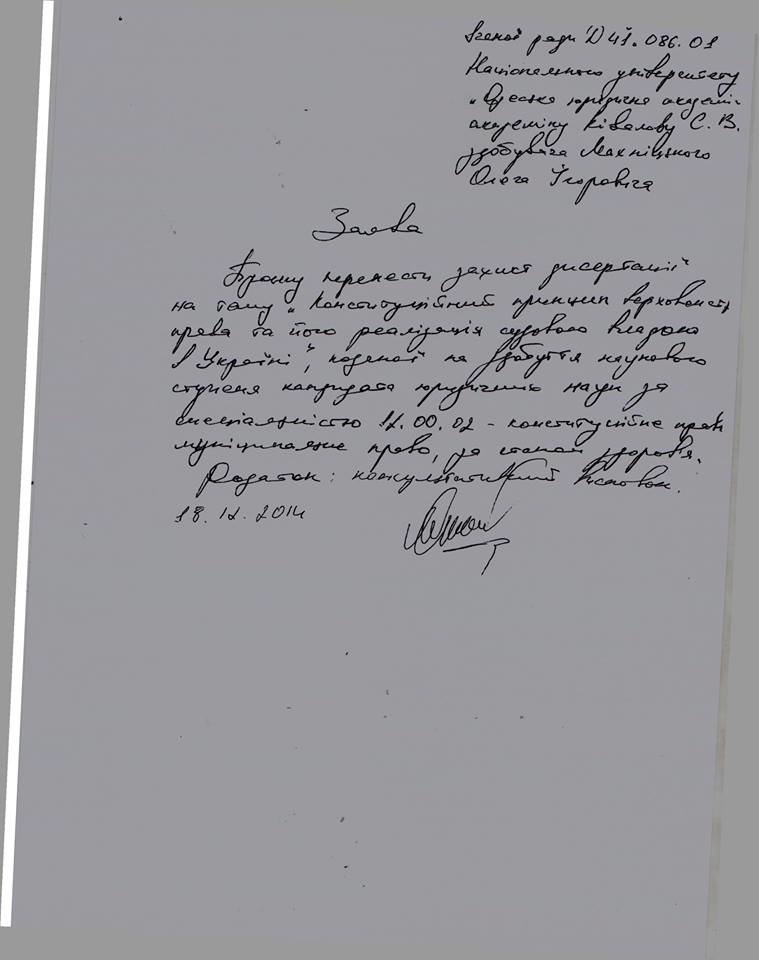 вченої ради Д 41.086.01
Національного університету
„Одеська юридична академі
академіку Ківалову С. В.
здобувача Махніцького
Олега Ігоровича
Заява
Прошу перенести захист дисертації
на тему „Конституційний принцип верховенств
права та його реалізація судовою владою
в Україні", поданої на здобуття наукового
ступеня кандидата юридичних наук за
спеціальністю 12.00.02 - конституційне прав
муніципальне право, за станом здоров'я.
Додаток: консультативний висновок.
18.12.2014